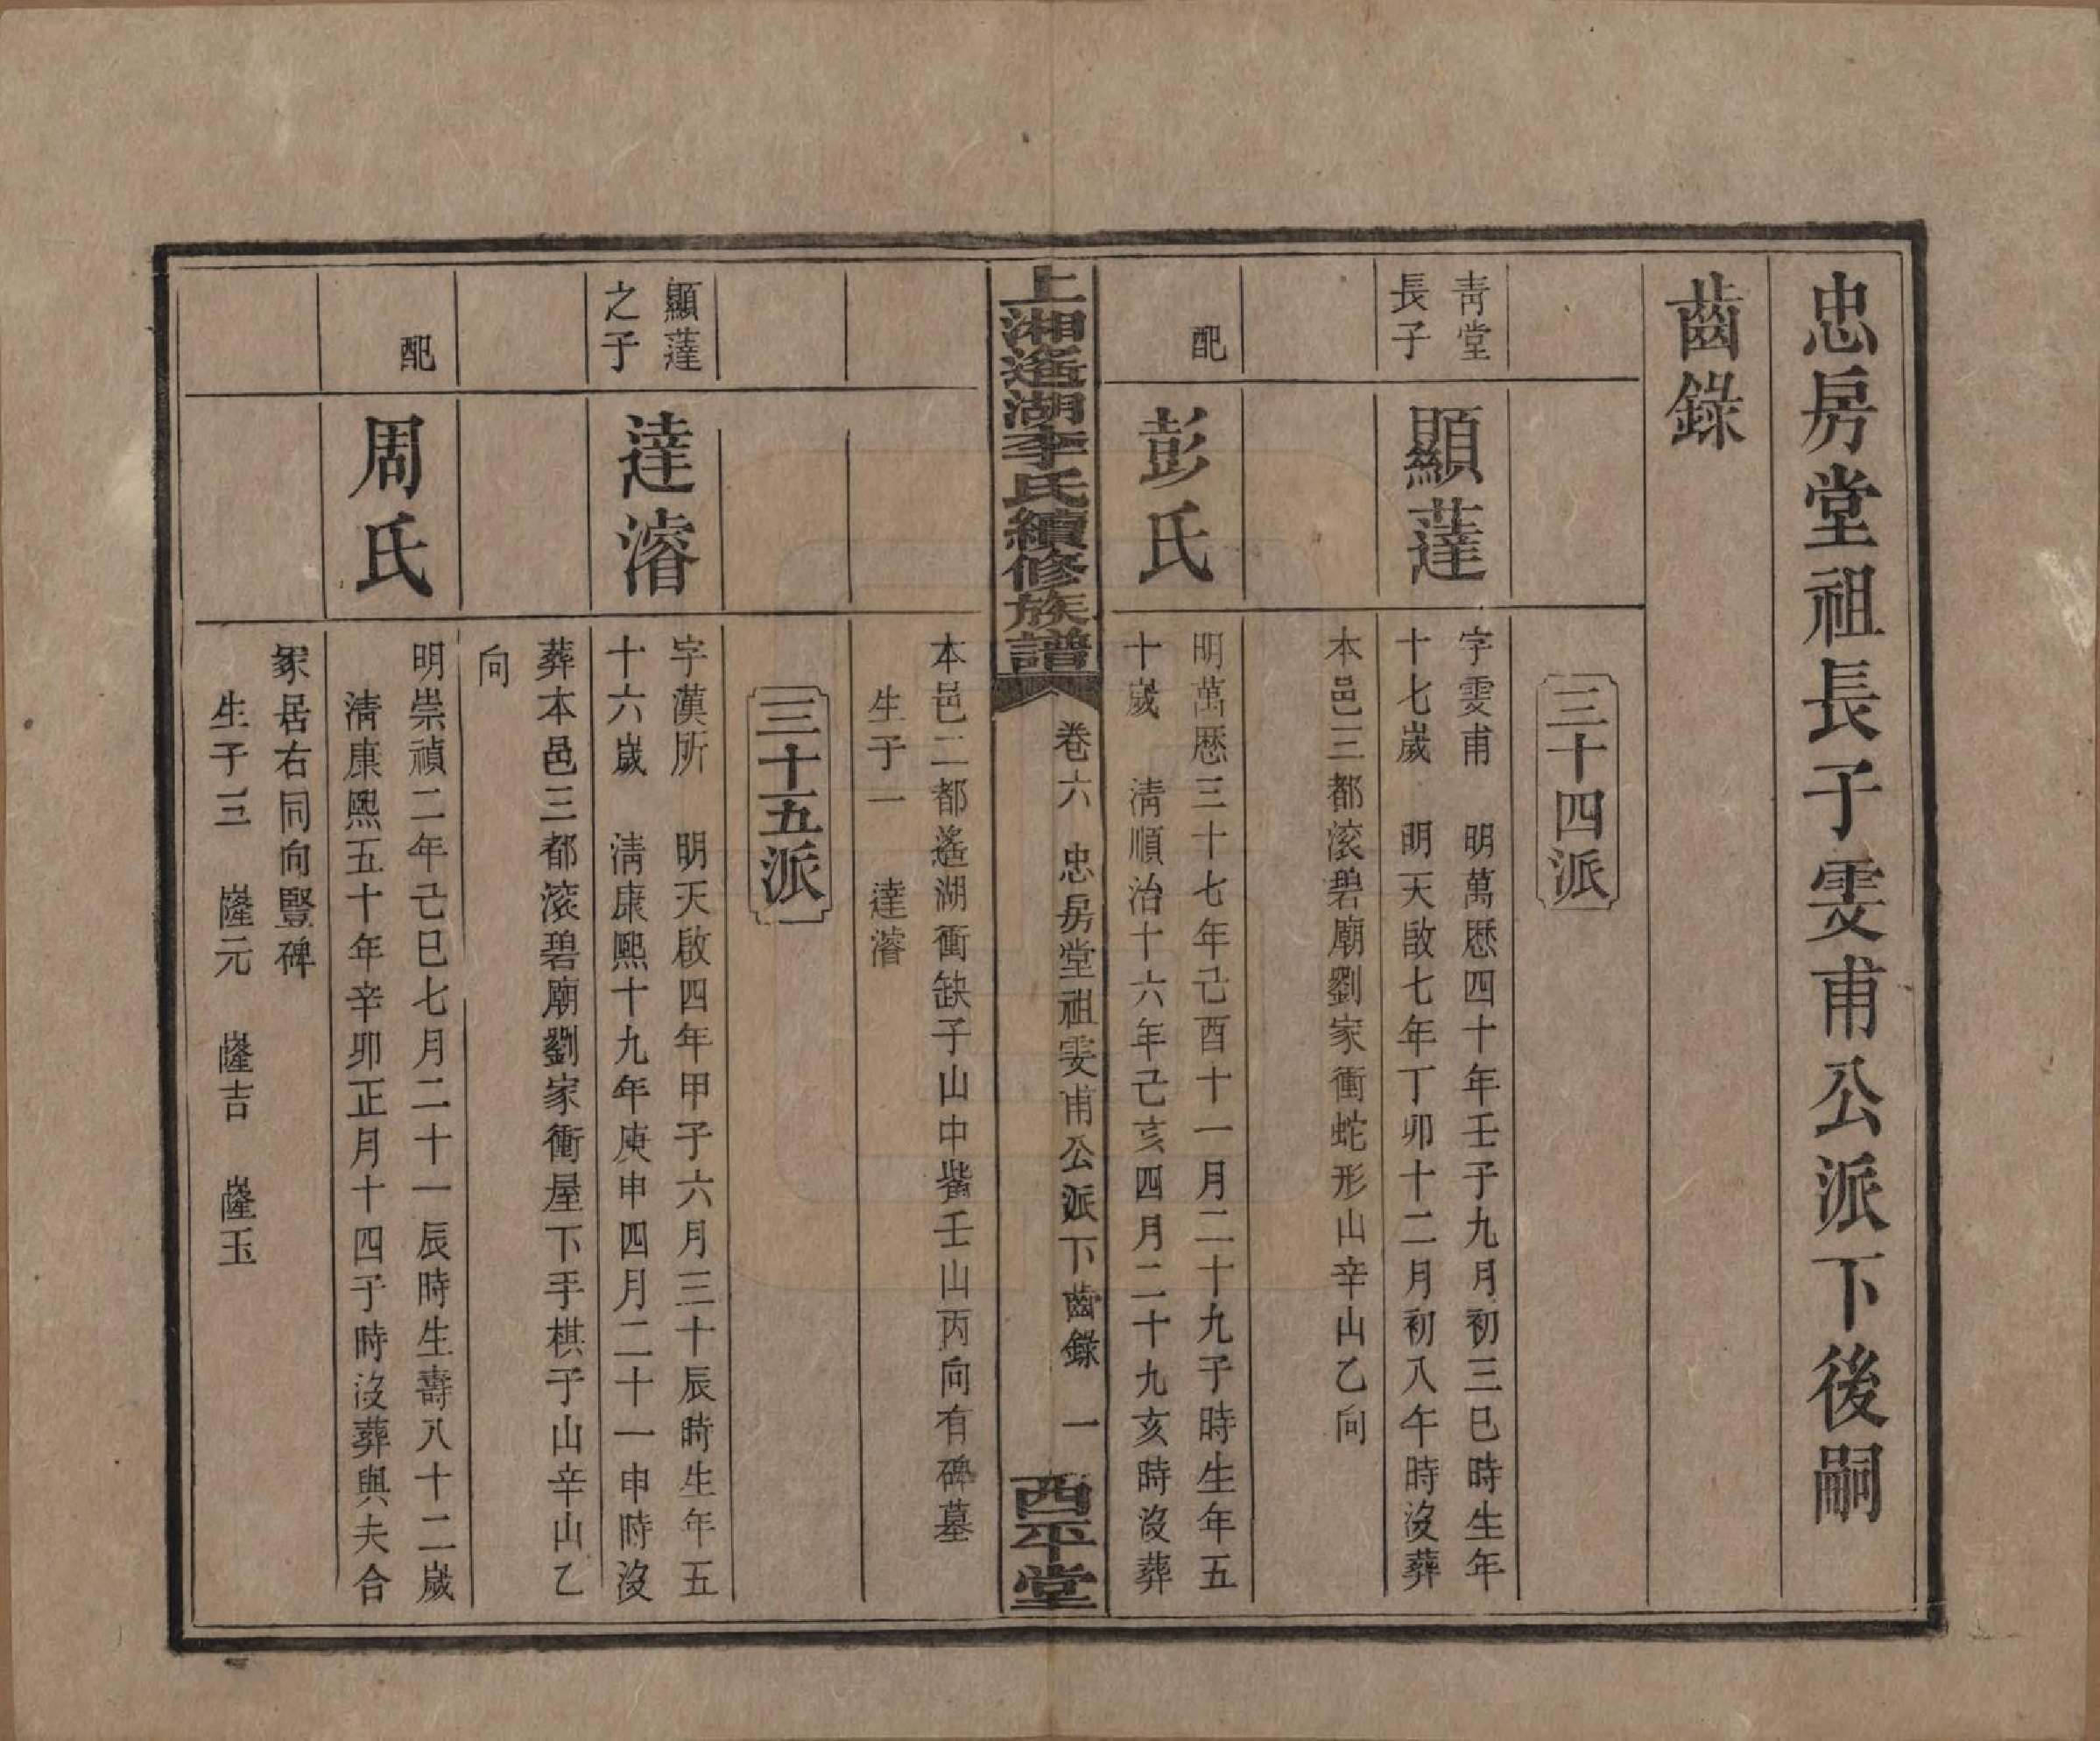 忠房堂祖長子雯甫公派下後嗣
齒錄
三十四派
青堂
長子
顯薘
字雯甫　明萬歷四十年壬子九月初三巳時生年
十七歲　明天啟七年丁卯十二月初八午時沒葬
本邑三都滚碧廟劉家衝蛇形山辛山乙向
配
彭氏
明萬歷三十七年己酉十一月二十九子時生年五
十歲　清順治十六年己亥四月二十九亥時沒葬
上湘遙湖李氏續修族譜
卷六　忠房堂祖雯甫公派下齒錄　一
西平堂
本邑二都遙湖衝缺子山中嘴壬山丙向有碑墓
生子一　達濬
三十五派
顯薘
之子
達濬
字漢所　明天啟四年甲子六月三十辰時生年五
十六歲　清康熙十九年庚申四月二十一申時沒
葬本邑三都滚碧廟劉家衝屋下手棋子山辛山乙
向
配
周氏
明崇禎二年己巳七月二十一辰時生壽八十二歲
清康熙五十年辛卯正月十四子時沒葬與夫合
冢居右同向豎碑
生子三　嶐元　嶐吉　嶐玉